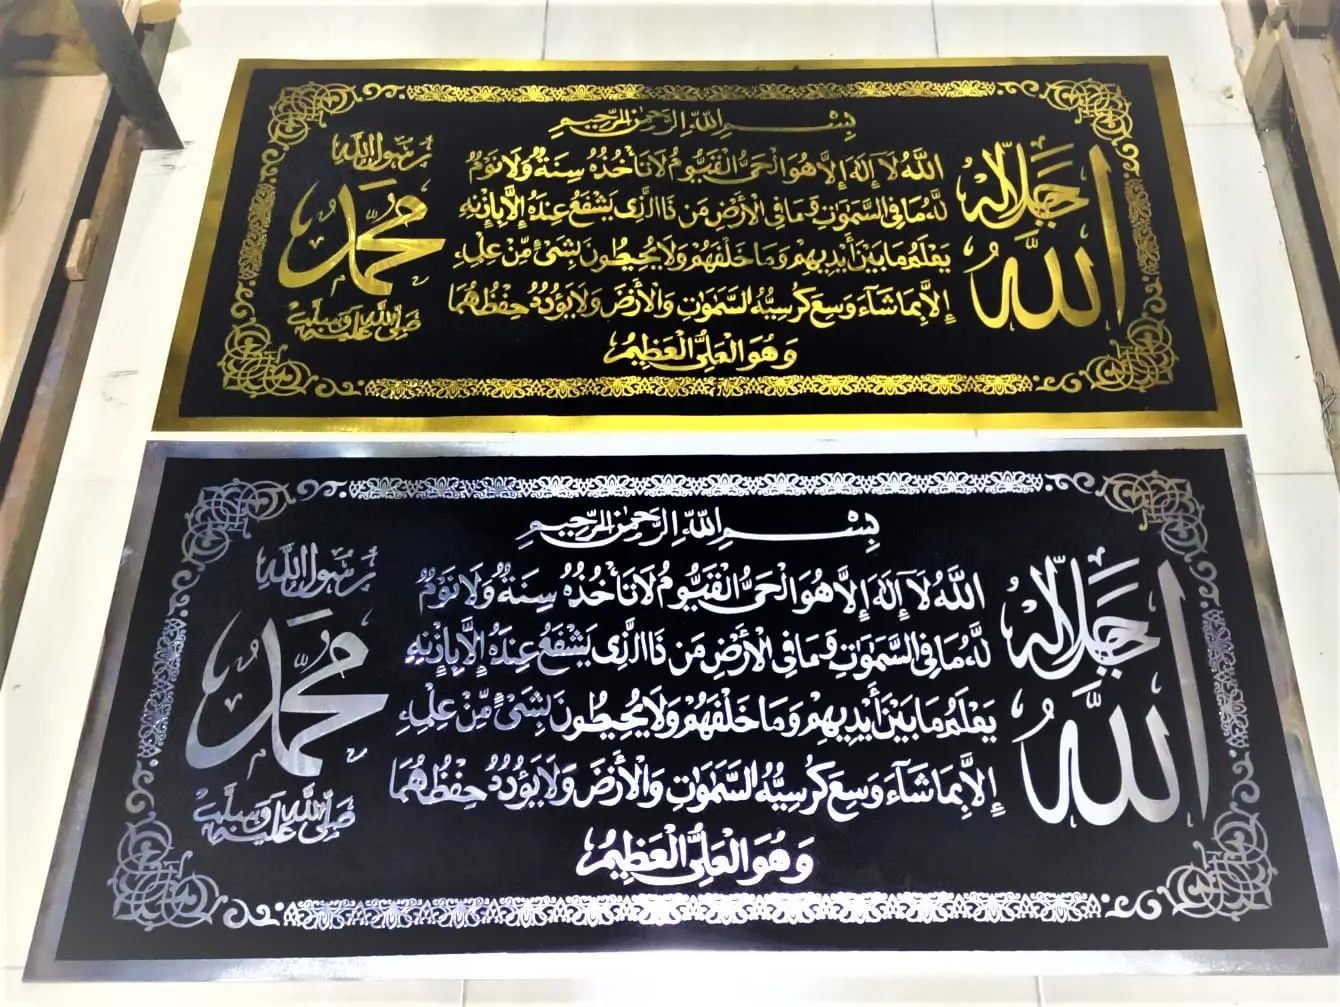 بِسْمِ اللّٰهِ الرَّحْمٰنِ الرَّحِيمِ
اللّٰهُ لَا إِلٰهَ إِلَّا هُوَ الْحَىُّ الْقَيُّومُ لَا تَأْخُذُهُ سِنَةٌ وَلَا نَوْمٌ
لَهُ مَا فِي السَّمٰوَاتِ وَمَا فِي الْأَرْضِ مَن ذَا الَّذِي يَشْفَعُ عِندَهُ إِلَّا بِإِذْنِهِ
يَعْلَمُ مَا بَيْنَ أَيْدِيهِمْ وَمَا خَلْفَهُمْ وَلَا يُحِيطُونَ بِشَىْءٍ مِّنْ عِلْمِهِ
إِلَّا بِمَا شَاءَ وَسِعَ كُرْسِيُّهُ السَّمٰوَاتِ وَالْأَرْضَ وَلَا يَؤُدُهُ حِفْظُهُمَا
وَهُوَ الْعَلِىُّ الْعَظِيمُ
اللّٰه
جل جلاله
رسول الله
محمد
صلى الله عليه وسلم
بِسْمِ اللّٰهِ الرَّحْمٰنِ الرَّحِيمِ
اللّٰهُ لَا إِلٰهَ إِلَّا هُوَ الْحَىُّ الْقَيُّومُ لَا تَأْخُذُهُ سِنَةٌ وَلَا نَوْمٌ
لَهُ مَا فِي السَّمٰوَاتِ وَمَا فِي الْأَرْضِ مَن ذَا الَّذِي يَشْفَعُ عِندَهُ إِلَّا بِإِذْنِهِ
يَعْلَمُ مَا بَيْنَ أَيْدِيهِمْ وَمَا خَلْفَهُمْ وَلَا يُحِيطُونَ بِشَىْءٍ مِّنْ عِلْمِهِ
إِلَّا بِمَا شَاءَ وَسِعَ كُرْسِيُّهُ السَّمٰوَاتِ وَالْأَرْضَ وَلَا يَؤُدُهُ حِفْظُهُمَا
وَهُوَ الْعَلِىُّ الْعَظِيمُ
اللّٰه
جل جلاله
رسول الله
محمد
صلى الله عليه وسلم